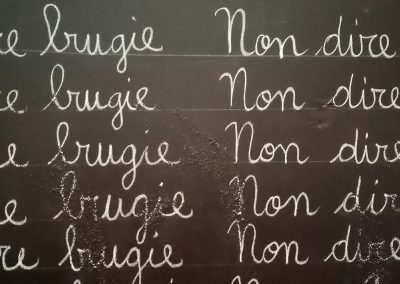 re bugie Non dire
e bugie Non dire
e bugie Non dire
e bugie Non dir
re bugie Non dire